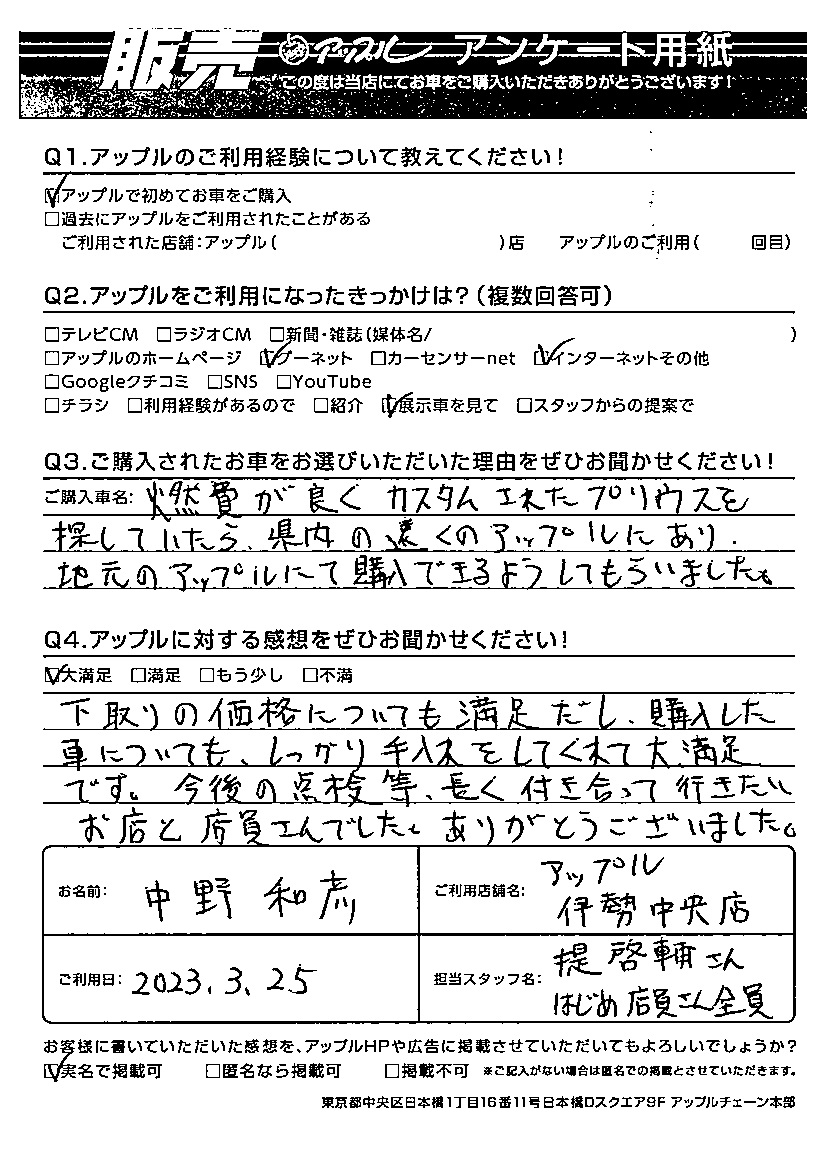 販売 アップル アンケート用紙
この度は当店にてお車をご購入いただきありがとうございます!
Q1.アップルのご利用経験について教えてください!
☑アップルで初めてお車をご購入
□過去にアップルをご利用されたことがある
ご利用された店舗:アップル( )店 アップルのご利用( 回目)
Q2.アップルをご利用になったきっかけは?(複数回答可)
□テレビCM □ラジオCM □新聞・雑誌(媒体名/ )
□アップルのホームページ ☑グーネット □カーセンサーnet ☑インターネットその他
□Googleクチコミ □SNS □YouTube
□チラシ □利用経験があるので □紹介 ☑展示車を見て □スタッフからの提案で
Q3.ご購入されたお車をお選びいただいた理由をぜひお聞かせください!
ご購入車名: 燃費が良くカスタムされたプリウスを
探していたら、県内の遠くのアップルにあり、
地元のアップルにて購入できるようしてもらいました。
Q4.アップルに対する感想をぜひお聞かせください!
☑大満足 □満足 □もう少し □不満
下取りの価格についても満足だし、購入した
車についても、しっかり手入れをしてくれて大満足
です。今後の点検等、長く付き合って行きたい
お店と店員さんでした。ありがとうございました。
お名前: 中野 和彦
ご利用店舗名: アップル
伊勢中央店
ご利用日: 2023.3.25
担当スタッフ名: 提 啓輔さん
はじめ店員さん全員
お客様に書いていただいた感想を、アップルHPや広告に掲載させていただいてもよろしいでしょうか?
☑実名で掲載可 □匿名なら掲載可 □掲載不可 ※ご記入がない場合は匿名での掲載とさせていただきます。
東京都中央区日本橋1丁目16番11号日本橋Dスクエア9F アップルチェーン本部